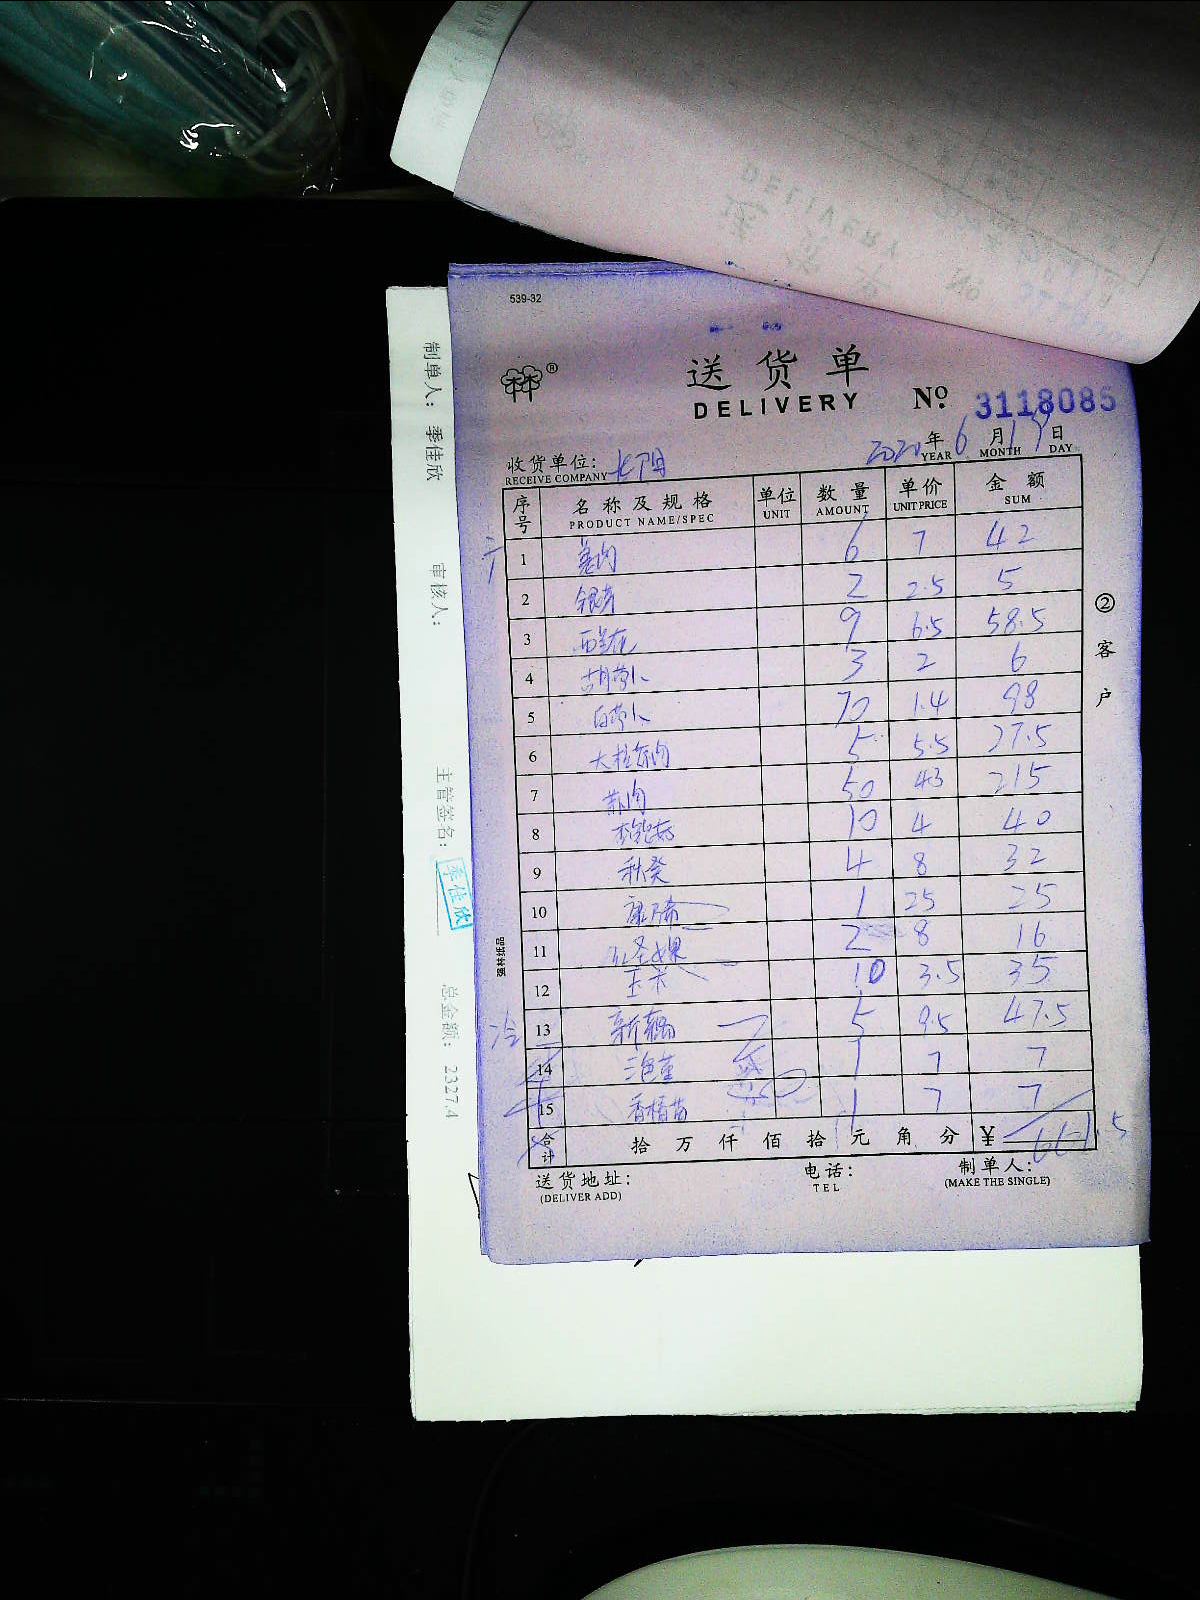 539-32
送货单
DELIVERY No. 3118085
2020年6月19日
YEAR MONTH DAY
收货单位:
RECEIVE COMPANY
序号 名称及规格 单位 数量 单价 金额
PRODUCT NAME/SPEC UNIT AMOUNT UNIT PRICE SUM
1 姜肉 6 7 42
2 银芽 2 2.5 5
3 西兰花 9 6.5 58.5
4 胡萝卜 3 2 6
5 白萝卜 70 1.4 98
6 5 5.5 27.5
7 50 43 215
8 杏鲍菇 10 4 40
9 秋葵 4 8 32
10 1 25 25
11 红圣女果 2 8 16
12 玉米 10 3.5 35
13 新藕 5 9.5 47.5
14 三色堇 1 7 7
15 香椿苗 1 7 7
合计 拾万仟佰拾元角分 ¥ 661.5
送货地址: 电话: 制单人:
(DELIVER ADD) TEL (MAKE THE SINGLE)
②客户
强林纸品
制单人: 季佳欣 审核人: 主管签名: 季佳欣 总金额: 2327.4